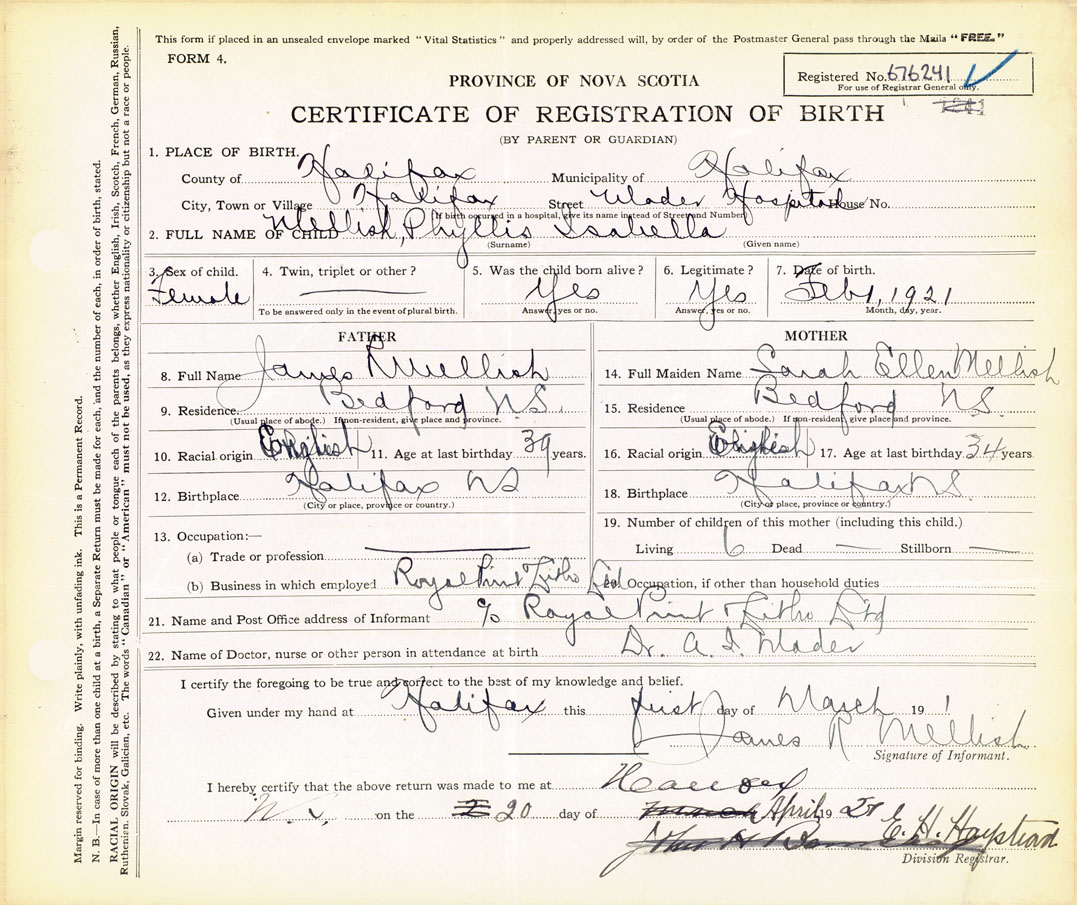 This form if placed in an unsealed envelope marked "Vital Statistics" and properly addressed will, by order of the Postmaster General pass through the Mails "FREE."
FORM 4.
Registered No. 676241
For use of Registrar General only.
PROVINCE OF NOVA SCOTIA
CERTIFICATE OF REGISTRATION OF BIRTH
(BY PARENT OR GUARDIAN)
1. PLACE OF BIRTH.
County of Halifax Municipality of Halifax
City, Town or Village Halifax Street Mader Hospital House No.
(If birth occurred in a hospital, give its name instead of Street and Number)
2. FULL NAME OF CHILD Mellish, Phyllis Isabella
(Surname) (Given name)
3. Sex of child. 4. Twin, triplet or other? 5. Was the child born alive? 6. Legitimate? 7. Date of birth.
Female Yes Yes Feb 1, 1921
To be answered only in the event of plural birth. Answer, yes or no. Answer, yes or no. Month, day, year.
FATHER
8. Full Name James R Mellish
9. Residence. Bedford N.S.
(Usual place of abode.) If non-resident, give place and province.
10. Racial origin English 11. Age at last birthday 39 years.
12. Birthplace Halifax NS
(City or place, province or country.)
13. Occupation:—
(a) Trade or profession
(b) Business in which employed Royal Print Litho Ltd
MOTHER
14. Full Maiden Name Sarah Ellen Mellish
15. Residence Bedford N.S.
(Usual place of abode.) If non-resident, give place and province.
16. Racial origin English 17. Age at last birthday. 34 years
18. Birthplace Halifax N.S.
(City or place, province or country.)
19. Number of children of this mother (including this child.)
Living 6 Dead — Stillborn —
20. Occupation, if other than household duties
21. Name and Post Office address of Informant c/o Royal Print & Litho Ltd
22. Name of Doctor, nurse or other person in attendance at birth Dr. A. I. Mader
I certify the foregoing to be true and correct to the best of my knowledge and belief.
Given under my hand at Halifax this first day of March 191
James R Mellish
Signature of Informant.
I hereby certify that the above return was made to me at
N.S. on the 20 day of April 1921
E. H.
Division Registrar.
Margin reserved for binding. Write plainly, with unfading ink. This is a Permanent Record.
N. B.—In case of more than one child at a birth, a Separate Return must be made for each, and the number of each, in order of birth, stated.
RACIAL ORIGIN will be described by stating to what people or tongue each of the parents belongs, whether English, Irish, Scotch, French, German, Russian,
Ruthenien, Slovak, Galician, etc. The words "Canadian" or "American" must not be used, as they express nationality or citizenship but not a race or people.